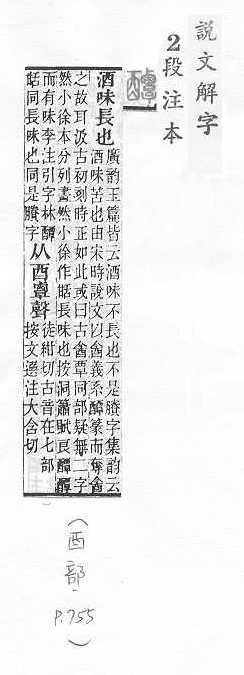 說文解字
2段注本
醰
酒味長也
廣韵玉篇皆云酒味不長也不是賸字集韵云
酒味苦也由宋時說文以酓義系醰篆而奪酓
之故耳汲古初刻時正如此或曰古酓覃同部疑無二字
然小徐本分列畫然小徐作甛長味也按洞簫賦良醰醰
而有味李注引字林醰
甛同長味也同是賸字
从酉覃聲
徒紺切古音在七部
按文選注大含切
(酉部,
P.755)